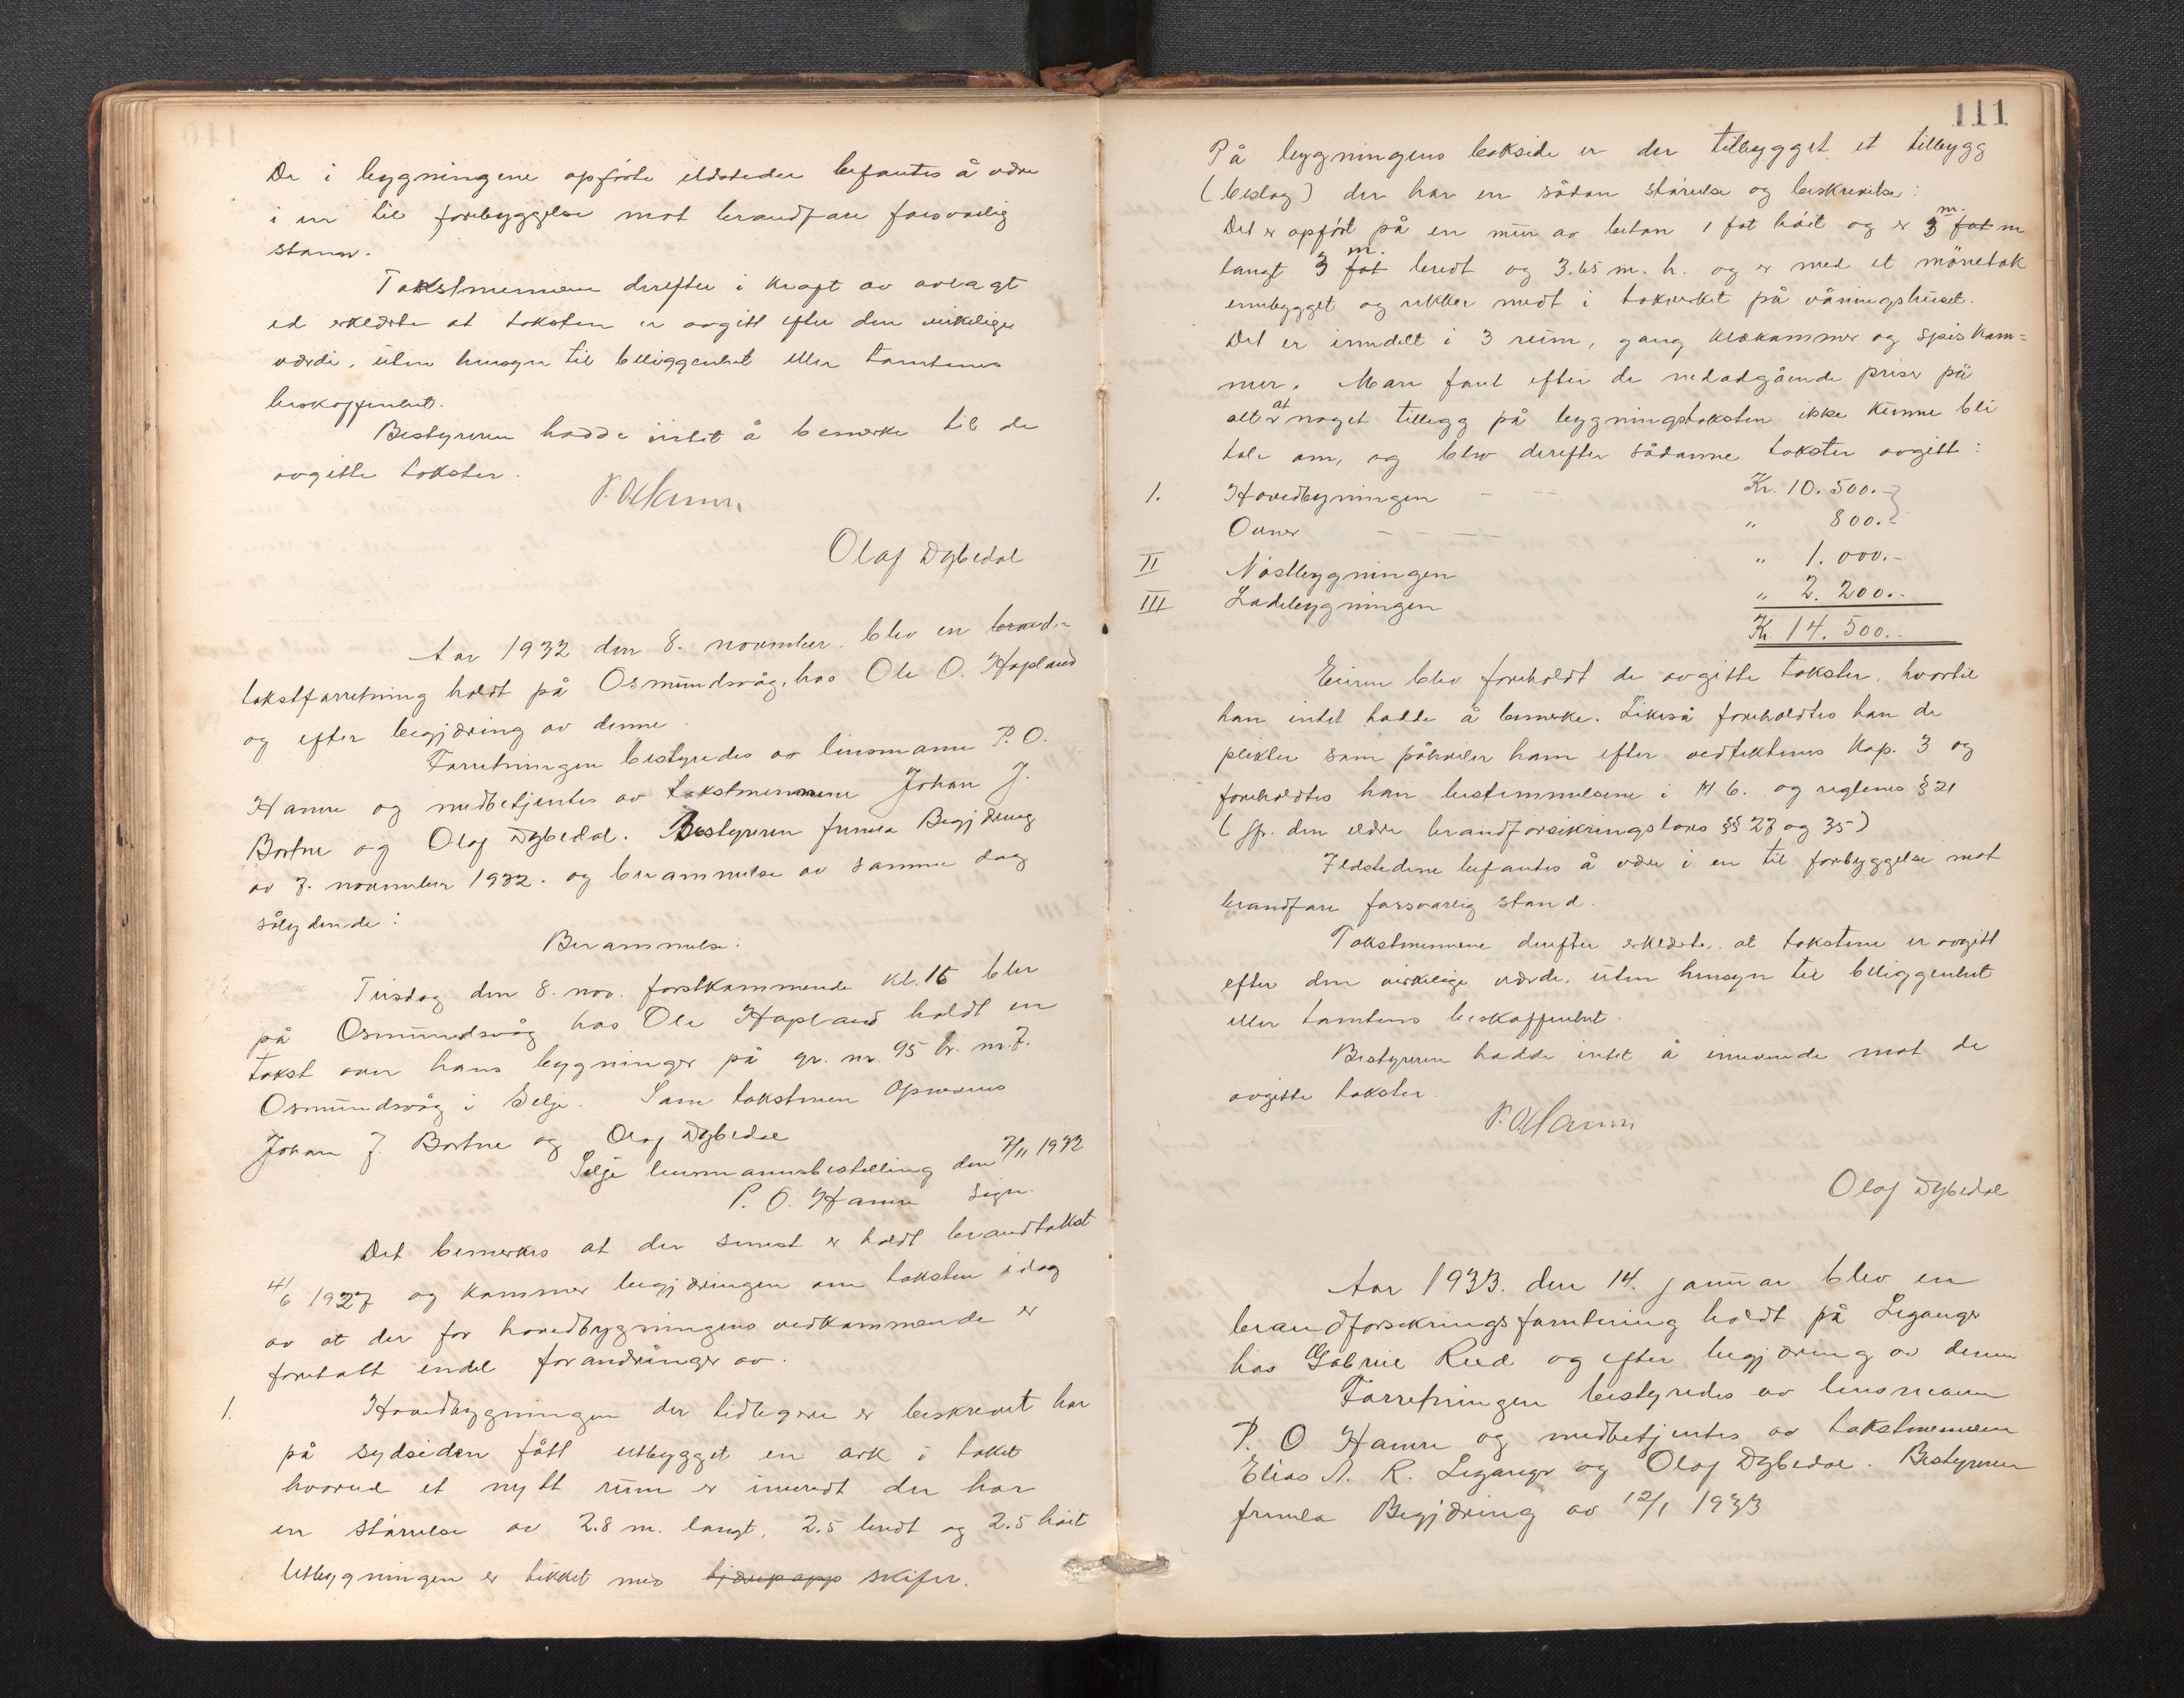 De i bygningene opførte ildsteder befantes å være
i en til forebyggelse mot brandfare forsvarlig
stand.
Takstmennene derefter i kraft av avlagt
ed erklærte at taksten er avgitt efter den virkelige
værdi, uten hensyn til beliggenhet eller tomtenes
beskaffenhet.
Bestyreren hadde intet å bemerke til de
avgitte takster.
P. O. Hamre
Olaf Dybedal
Aar 1932 den 8. november, blev en brand-
takstforretning holdt på Osmundsvåg, hos Ole O. Hopland
og efter begjæring av denne.
Forretningen bestyredes av lensmann P. O.
Hamre og medbetjentes av takstmennene Johan J.
Bortne og Olaf Dybedal. Bestyreren fremla Begjæring
av 7. november 1932. og berammelse av samme dag
sålydende:
Berammelse:
Tirsdag den 8. nov. førstkommende kl. 15 blir
på Osmundsvåg hos Ole Hopland holdt en
takst over hans bygninger på gr. nr. 95 br. nr. 7.
Osmundsvåg i Selje. Som takstmen opnevnes
Johan J. Bortne og Olaf Dybedal
Selje lensmannsbestilling den 7/11 1932
P. O. Hamre sign.
Det bemerkes at der senest er holdt brandtakst
4/6 1927 og kommer begjæringen om taksten idag
av at der for hovedbygningens vedkommende er
foretatt endel forandringer av.
1. Hovedbygningen der tidligere er beskrevet har
på sydsiden fått utbygget en ark i taket
hvorved et nytt rum er innredt der har
en størrelse av 2.8 m. langt, 2.5 bredt og 2.5 høit
Utbygningen er tekket med tjærepapp skifer.
111
På bygningens bakside er der tilbygget et tilbygg
(beslag) der har en sådan størrelse og beskrivelse:
Det er opført på en mur av betan 1 fot høit og er 3 m. fot m
langt 3 m. fot bredt og 3.65 m. h. og er med et mönetak
ennbygget og rekker nedt i takverket på våningshuset.
Det er inndelt i 3 rum, gang klækammer og spiskam=
mer. Man fant efter de nedadgående priser på
alt at noget tillegg på bygningstaksten ikke kunne bli
tale om, og blev derefter sådanne takster avgitt:
1. Hovedbyningen - - Kr. 10.500.-
Ovner - - - - " 800.-
II Nøstbygningen " 1.000.-
III Ladebygningen " 2.200.-
Kr. 14.500.-
Eieren blev foreholdt de avgitte takster, hvortil
han intet hadde å bemerke. Likeså foreholdtes han de
plikter som påhviler ham efter vedtektenes Kap. 3 og
foreholdtes han bestemmelsene i § 6. og reglenes § 21
(jfr. den eldre brandforsikringslovs §§ 27 og 35)
Ildstedene befantes å være i en til forbyggelse mot
brandfare forsvarlig stand.
Takstmennene derefter erklærte, at takstene er avgitt
efter den virkelige værde, uten hensyn til beliggenhet
eller tomtens beskaffenhet.
Bestyreren hadde intet å innvende mot de
avgitte takster.
P. O. Hamre
Olaf Dybedal
Aar 1933. den 14. januar blev en
brandforsikringsforretning holdt på Leganger
hos Gabriel Reed og efter begjæring av denne
Forretningen bestyredes av lensmann
P. O. Hamre og medbetjentes av takstmennene
Elias A. R. Leganger og Olaf Dybedal. Bestyreren
fremla Begjæring av 12/1 1933